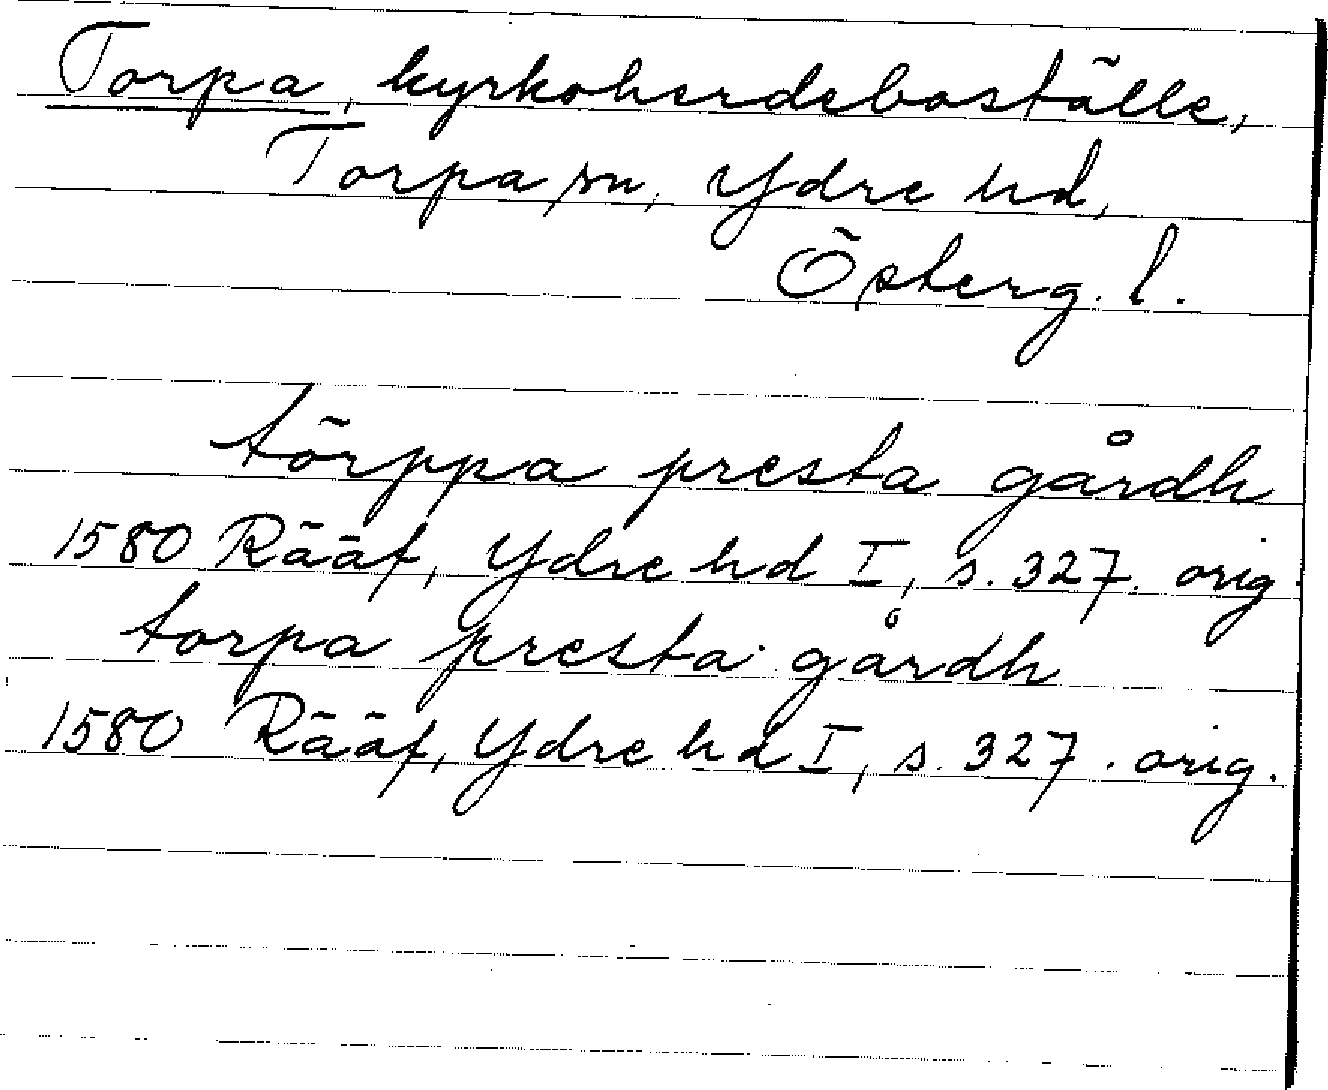 Torpa, kyrkoherdeboställe,
Torpa sn, Ydre hd,
Österg. l.
törppa presta gårdh
1580 Rääf, Ydre hd I, s. 327. orig.
torpa presta gårdh
1580 Rääf, Ydre hd I, s. 327. orig.